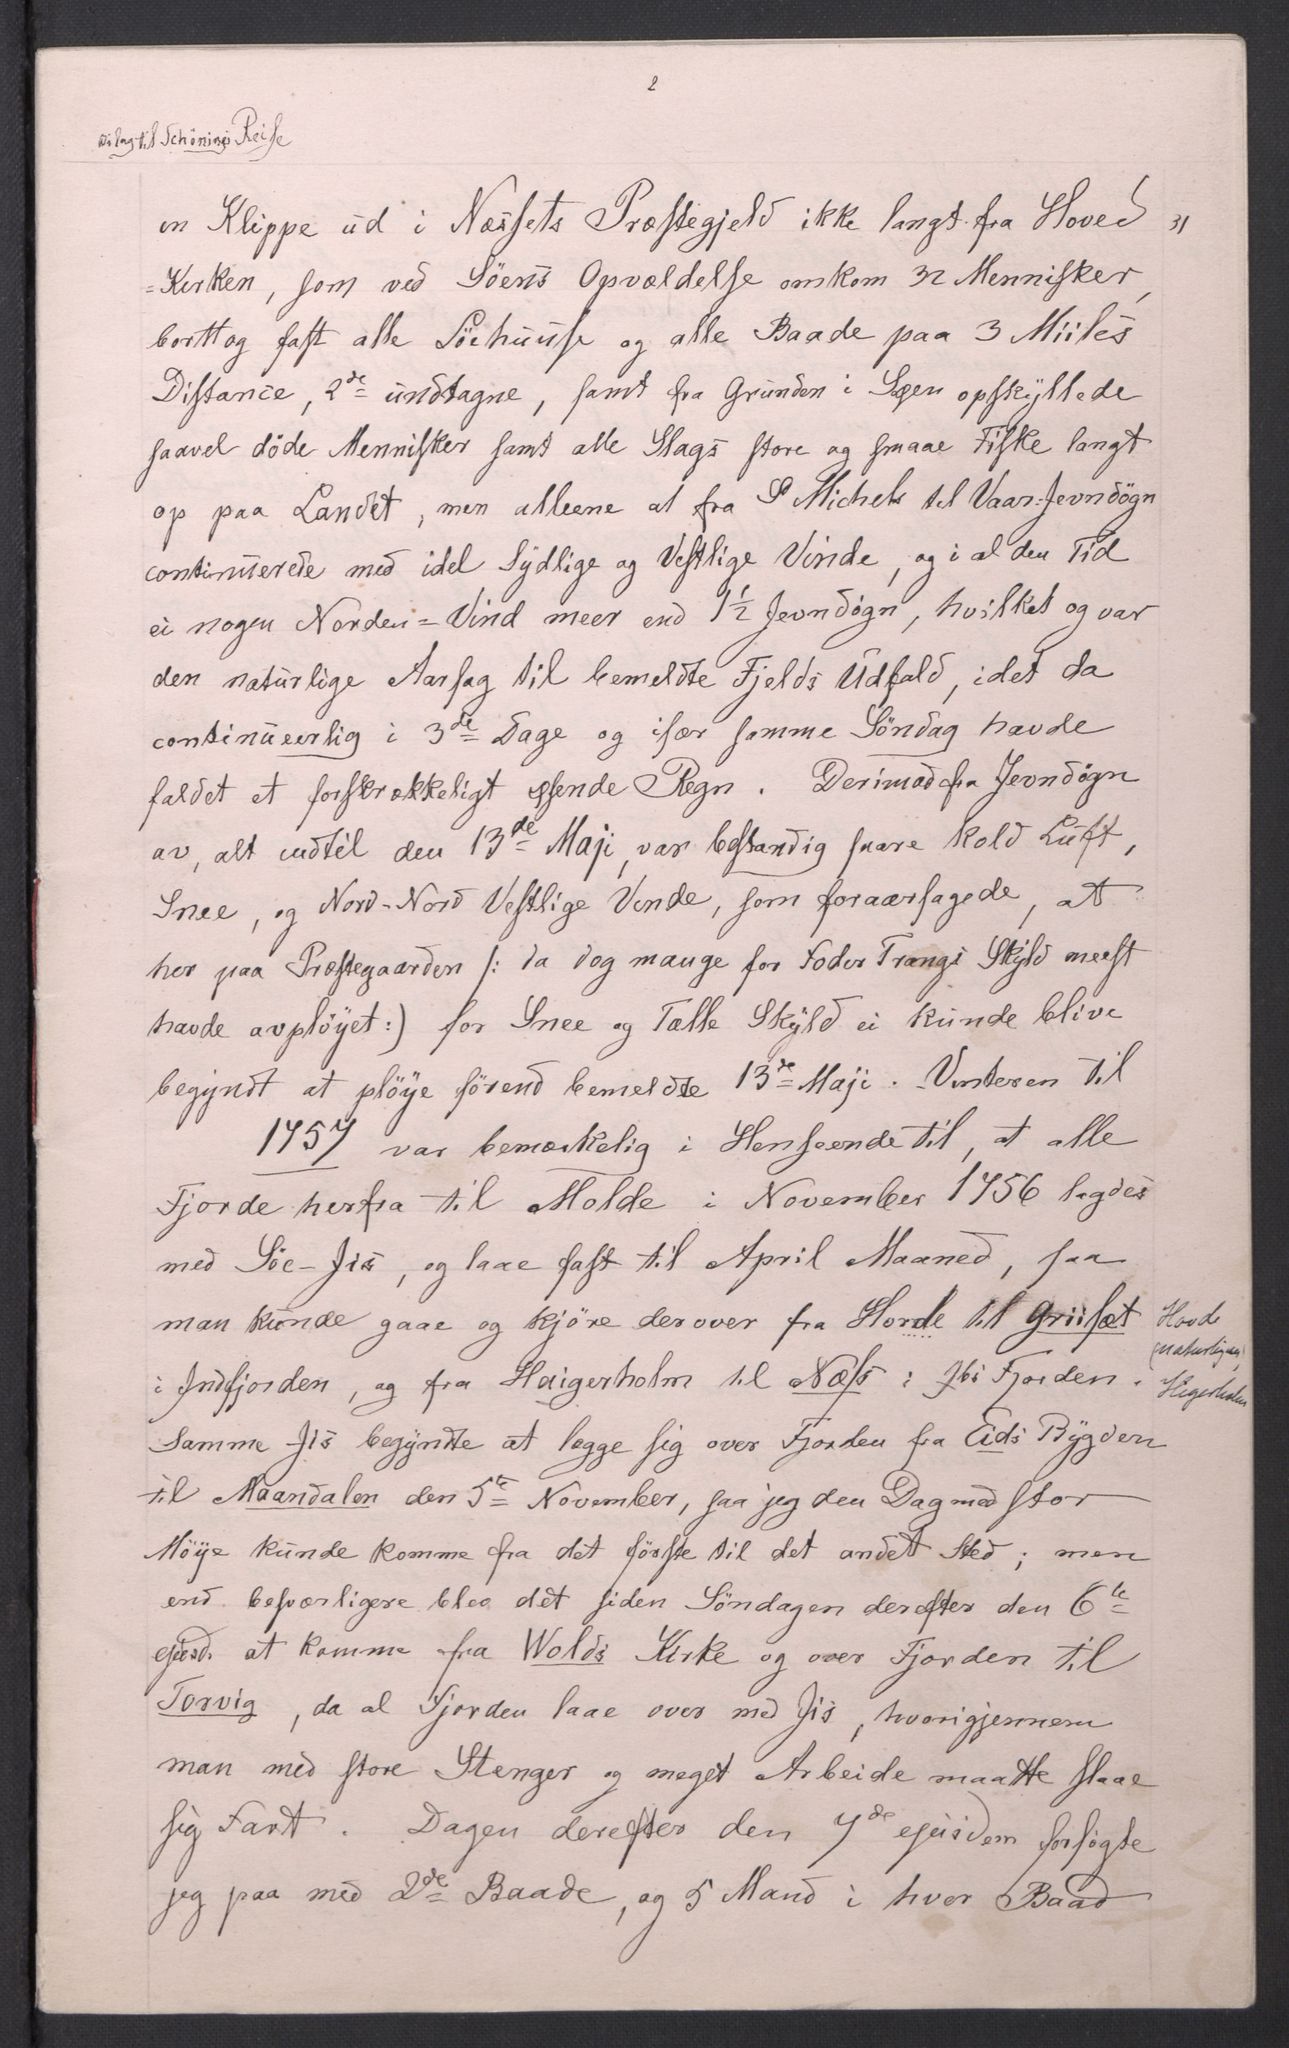 2
Bilag til Schönings Reise
en Klippe ud i Næssets Præstegjeld ikke langt fra Hoved
31
=Kirken, som ved Söens Opvældelse omkom 32 Mennisker,
borttog fast alle Söehuuse og alle Baade paa 3 Miiles
Distance, 2de undtagne, samt fra Grunden i Søen opskyllede
saavel döde Mennisker samt alle Slags store og smaae Fiske langt
op paa Landet, men alleene at fra S Michels til Vaar-Jevndögn
continuerede med idel Sydlige og Vestlige Vinde, og i al den Tid
ei nogen Norden=Vind meer end 1½ Jevndögn, hvilket og var
den naturlige Aarsag til bemeldte Fjelds Udfald, idet da
continueerlig i 3de Dage og især samme Söndag havde
faldet et forskrækkeligt øsende Regn. Derimod fra Jevndögn
av, alt indtil den 13de Maji, var bestandig svare kold Luft,
Snee, og Nord-Nord Vestlige Vinde, som foraarsagede, at
her paa Præstegaarden /: da dog mange for Foder Trangs Skyld meest
havde avplöyet:) for Snee og Tælle Skyld ei kunde blive
begyndt at plöye förend bemeldte 13de Maji. Vinteren til
1757 var bemærkelig i Henseende til, at alle
Fjorde herfra til Molde i November 1756 lagdes
med Söe-Jis, og laae fast til April Maaned, saa
man kunde gaae og kjöre derover fra Horde til Griisæt
Hovde
(naturligvis)
i Indfjorden, og fra Haigerholm til Næss i Jbs Fjorden.
Hegerholm
Samme Jis begyndte at lægge sig over Fjorden fra Eids Bygden
til Maandalen den 5te November, saa jeg den Dag med stor
Möye kunde komme fra det förste til det andet Sted; men
end besværligere blev det siden Söndagen derefter den 6te
ejusd. at komme fra Wolds Kirke og over Fjorden til
Torvig, da al Fjorden laae over med Jis, hvorigjennem
man med store Stenger og meget Arbeide maatte slaae
sig Fart. Dagen derefter den 7de ejusdem forsögte
jeg paa med 2de Baade, og 5 Mand i hver Baad